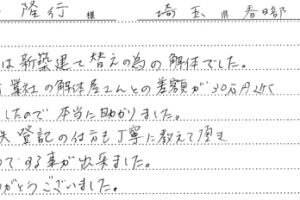 隆行 様 埼玉 県 春日部
は新築建て替えの為の解体でした。
業社の解体屋さんとの差額が30万円近く
したので本当に助かりました。
失登記の仕方も丁寧に教えて頂き
でする事が出来ました。
がとうございました。